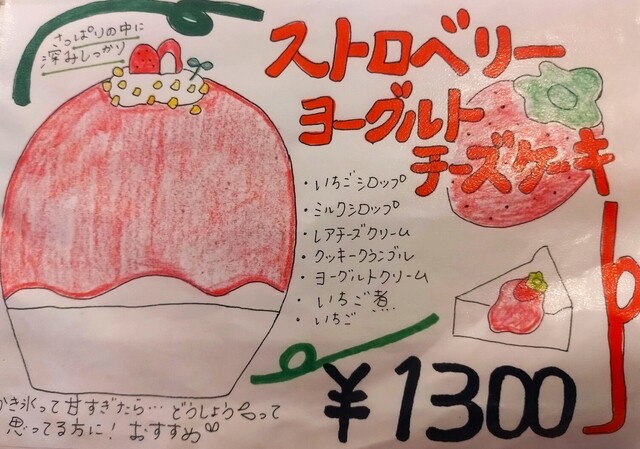 さっぱりの中に
深みしっかり
ストロベリー
ヨーグルト
チーズケーキ
・いちごシロップ
・ミルクシロップ
・レアチーズクリーム
・クッキークランブル
・ヨーグルトクリーム
・いちご煮
・いちご
¥1300
かき氷って甘すぎたら…どうしようって
思ってる方に!おすすめ